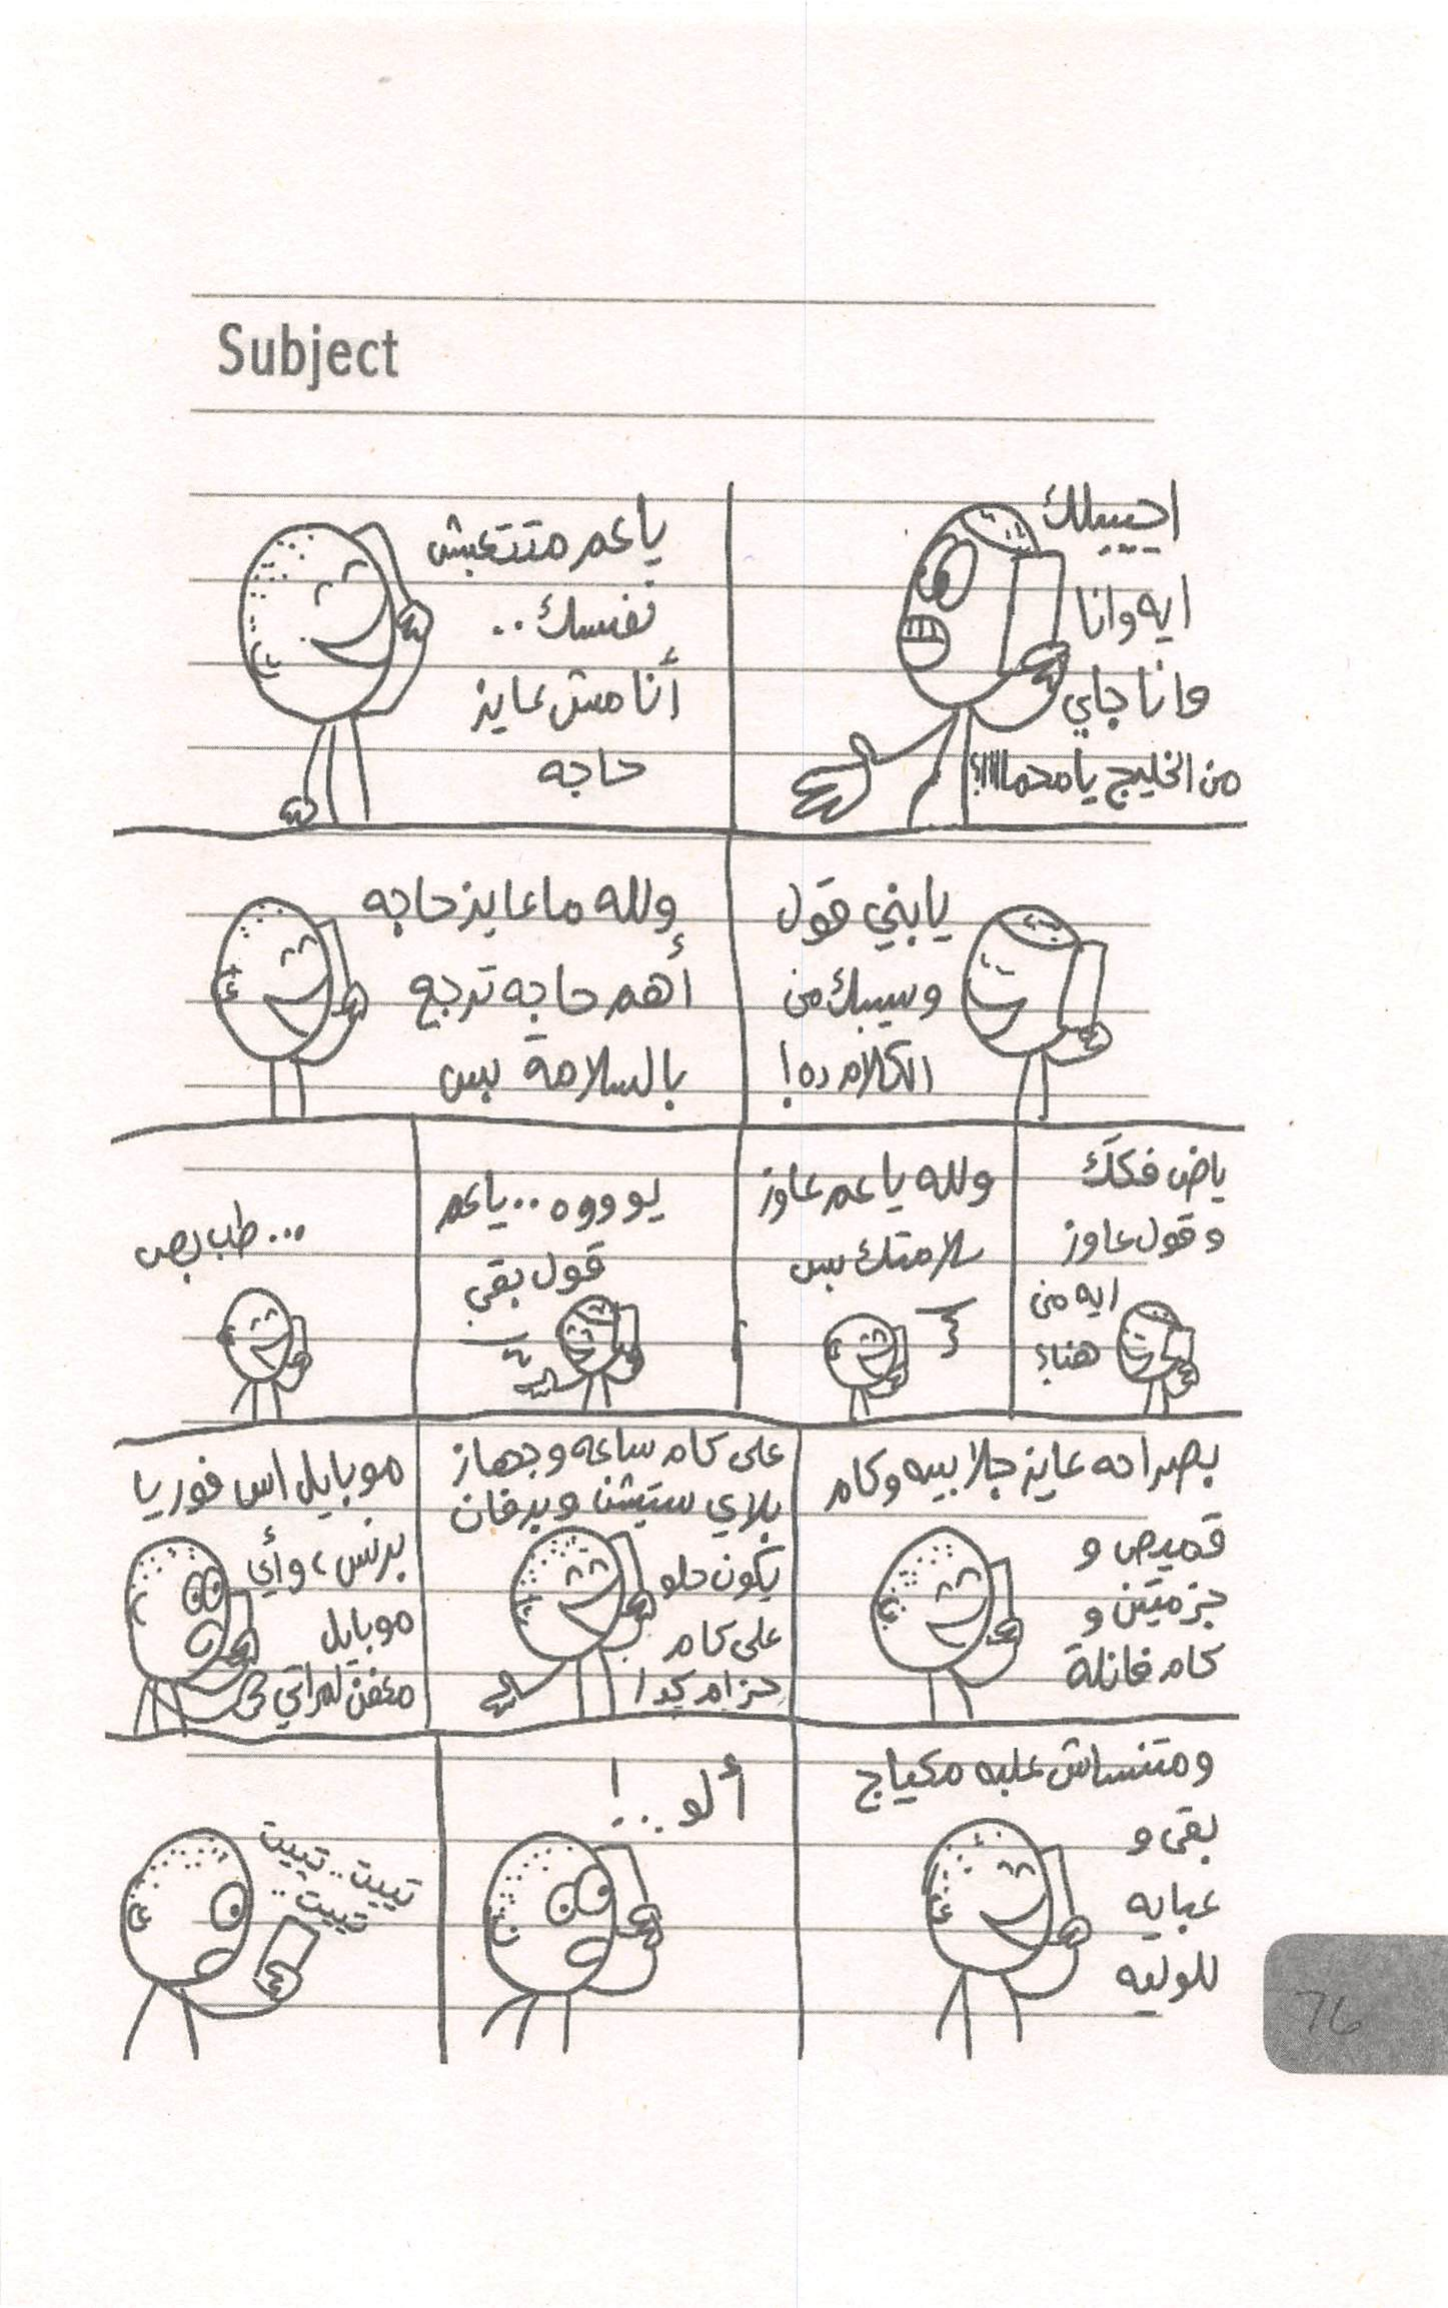 Subject
اجييبلك
ايه وانا
وانا جاي
من الخليج يا محماااا؟!
يا عم متتعبش
نفسك..
أنا مش عايز
حاجه
يابني قول
وسيبك من
الكلام ده!
ولله ما عايز حاجه
أهم حاجه ترجع
بالسلامة بس
ياض فكك
وقول عاوز
ايه من
هنا؟
ولله يا عم عاوز
سلامتك بس
يوووه.. يا عم
قول بقي
... طب بص
بصراحه عايز جلابيه وكام
قميص و
جزمتين و
كام فانلة
على كام ساعه وجهاز
بلاي ستيشن وبرفان
يكون حلو
على كام
حزام كدا
موبايل اس فور يا
برنس، وأي
موبايل
معفن لمراتي
ومتنساش علبه مكياج
بقى و
عبايه
للوليه
ألو..!
تييت.. تييت
تييت..
76